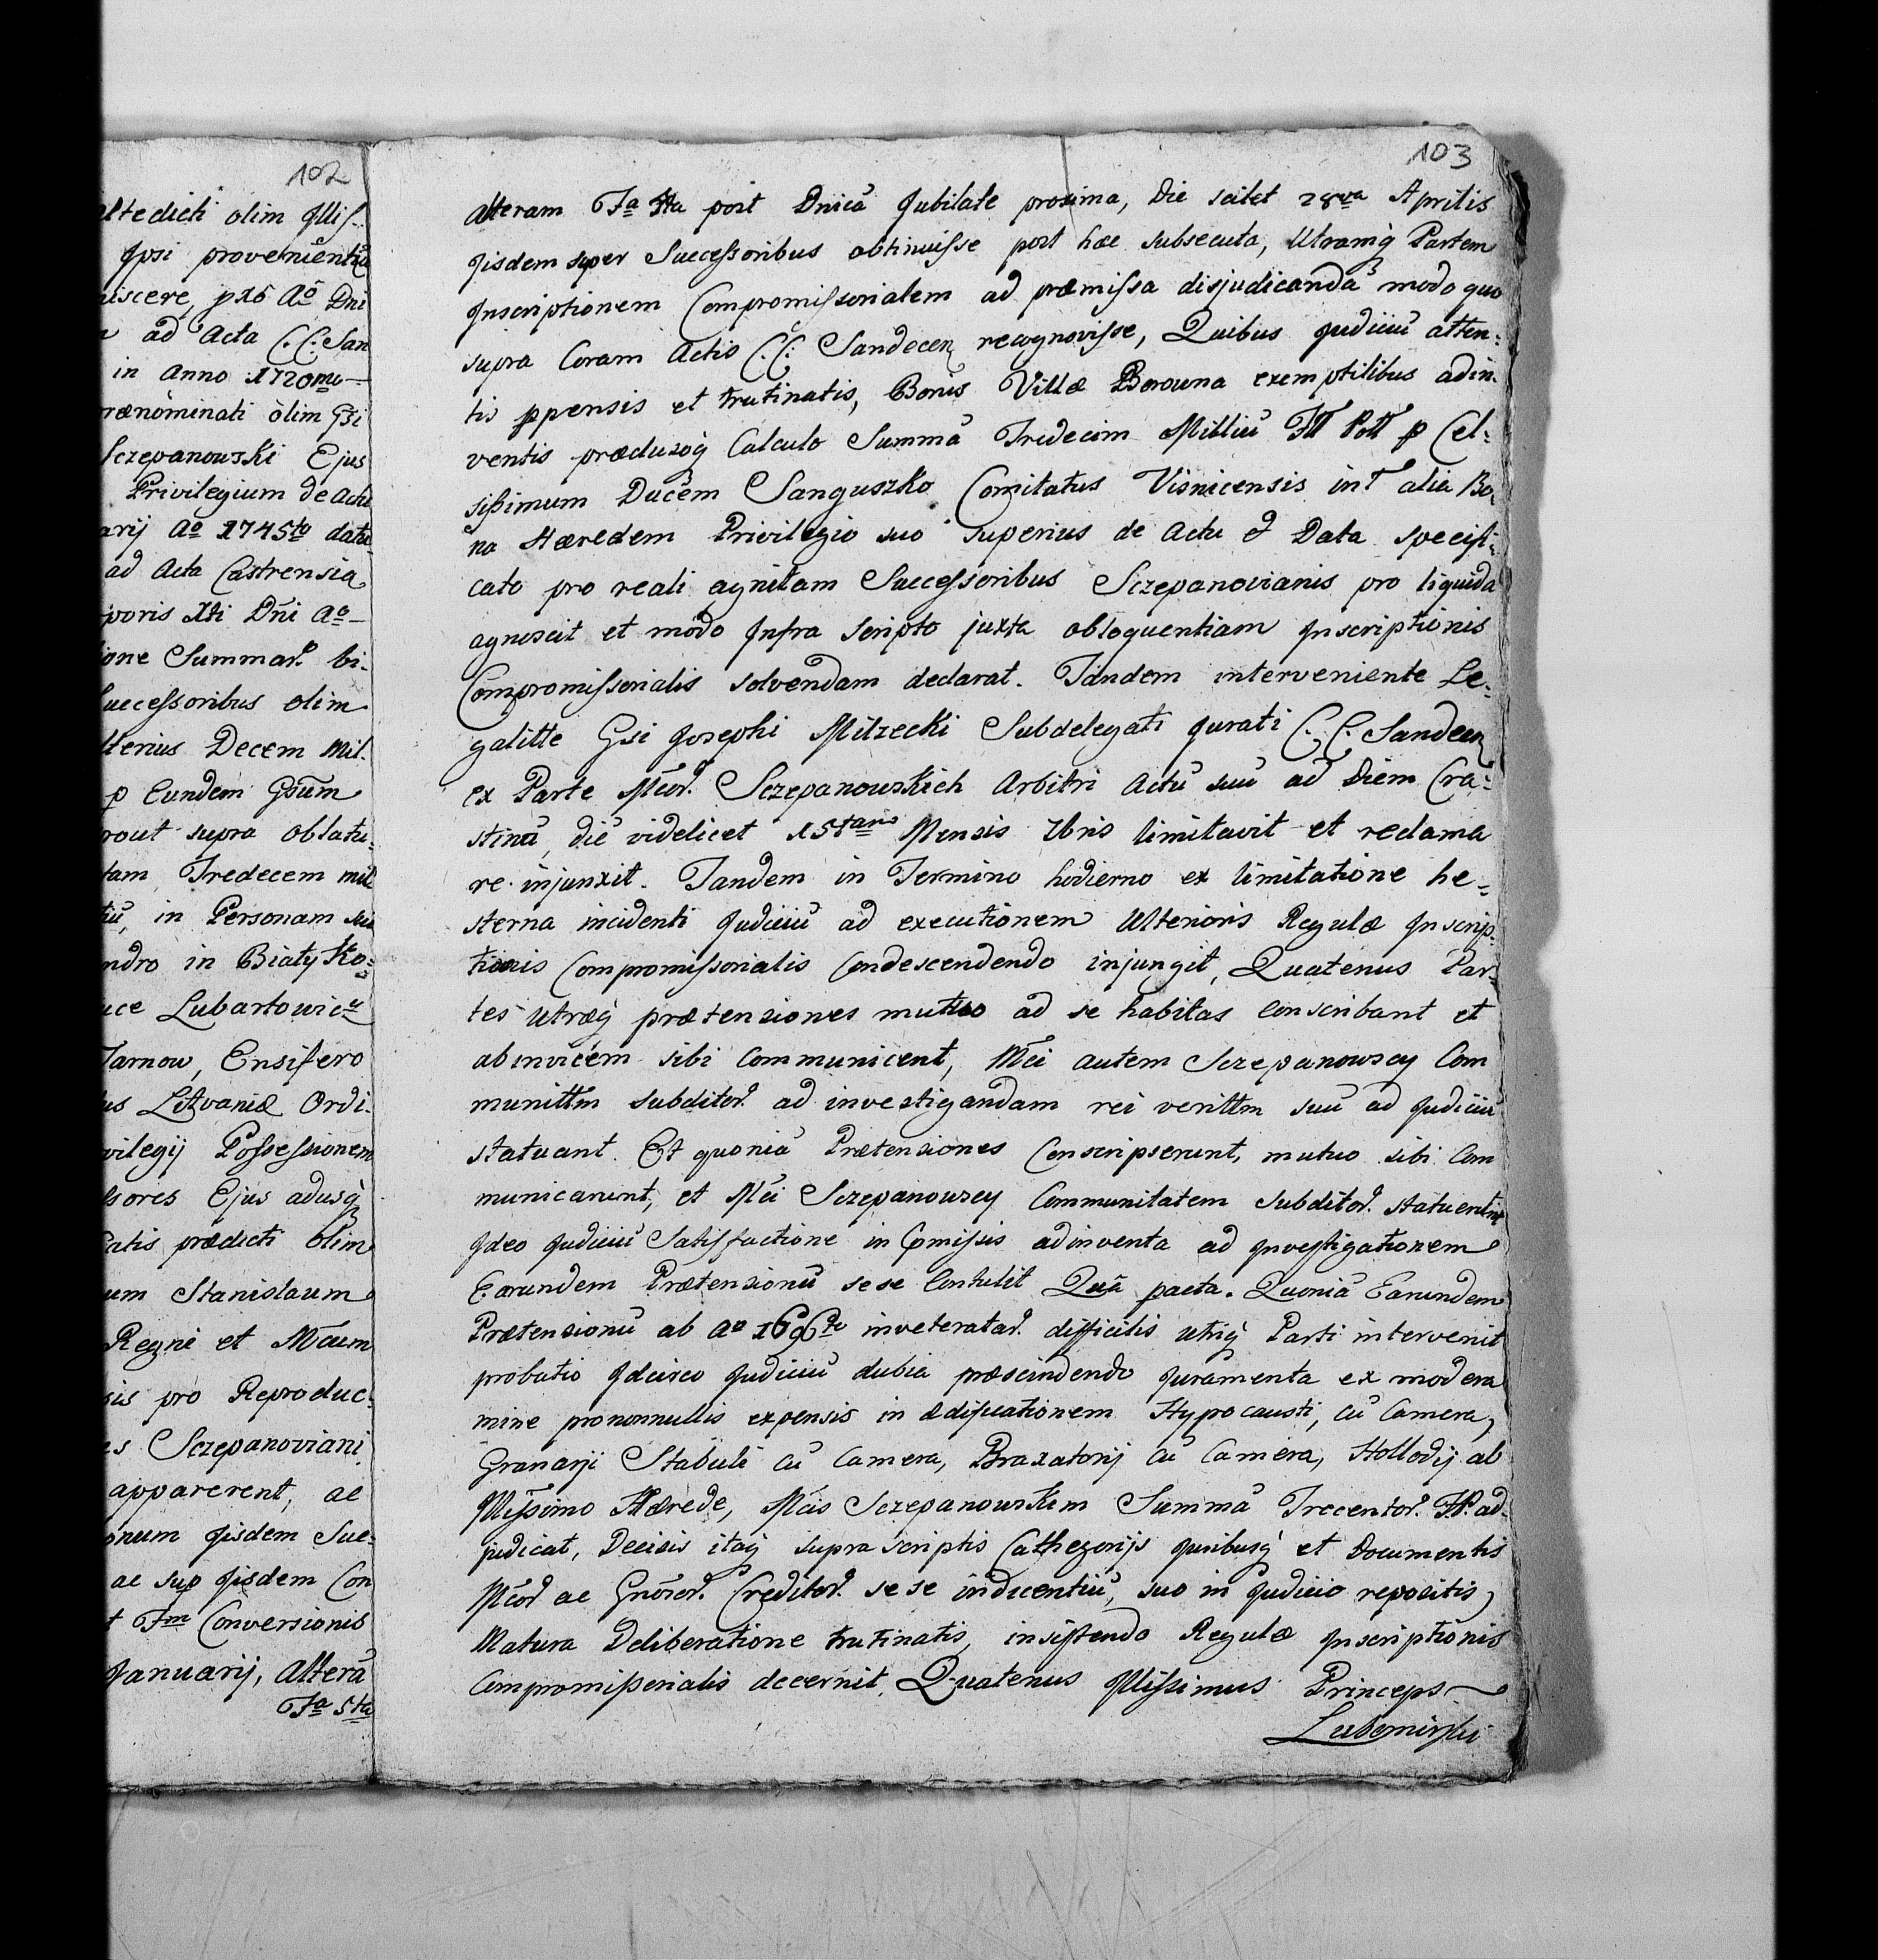 102
ltedicti olim Jllis
Jpsi provenientiũ
niscere, pxõ Aõ Dni
ad Acta C.C. San
in Anno 1720mo
rænominati olim Gsi
Sczepanowski Ejus
Privilegium de Actu
arij Ao 1745to datũ
ad Acta Castrensia
poris Xti Dni Ao
ione Summar. bi-
Successoribus olim
lterius Decem Mil-
p Eundem Gsum
rout supra oblatũ
tam Tredecem mil
tiũ, in Personam sua
ndro in Biały Ko-
uce Lubartowicũ
Tarnow, Ensifero
us Litvaniæ Ordi-
vilegij Possessionem
ssores Ejus adusq́
atis prædicti olim
um Stanislaum
Regni et Mcum
sis pro Reproduc-
s Sczepanoviani
apparerent, ac
onum Jisdem Suc-
ac sup Jisdem Con
t Fm Conversionis
Januarij, Alterã
Fa 5ta
103
alteram Fa 4ta post Dnicã Jubilate proxima, Die scilet 28va Aprilis
Jisdem super Successoribus obtinuisse post hæc subsecuta, Utramq́ Partem
Jnscriptionem Compromissorialem ad præmissa disjudicanda modo quo
supra Coram Actis C.C. Sandecen recognovisse, Quibus Judiciũ atten-
tis ppensis et trutinatis, Bonis Villæ Borowna exemptilibus adin-
ventis præduxoq́ Calculo Summã Tredecim Milliũ Fll Poll p Cel-
sissimum Ducem Sanguszko Comitatus Visnicensis int alia Bo-
na Hæredem Privilegio suo superius de Actu & Data specifi-
cato pro reali agnitam Successoribus Sczepanovianis pro liquida
agnoscit et modo Jnfra scripto juxta obloquentiam Jnscriptionis
Compromissorialis solvendam declarat. Tandem interveniente Le-
galitte Gsi Josephi Milzecki Subdelegati Jurati C.C. Sandecen
ex Parte Mcor. Sczepanowskich Arbitri Actũ suũ ad Diem Cra-
stinũ, diẽ videlicet 15tam Mensis Xbris limitavit et reclama
re injunxit. Tandem in Termino hodierno ex limitatione he-
sterna incidenti Judiciũ ad executionem Ulterioris Regulæ Jnscrip-
tionis Compromissorialis Condescendendo injungit, Quatenus Par-
tes utræq́ prætensiones mutuo ad se habitas Conscribant et
abinvicem sibi Communicent, Mci autem Sczepanowscy Com
munittm subditor. ad investigandam rei verittm suũ ad Judiciũ
statuant. Et quoniã Prætensiones Conscripserunt, mutuo sibi Com
municarunt, et Mci Sczepanowscy Communitatem subditor. statuerunt
Jdeo Judiciũ Satisfactione in Cpmissis adinventa ad Jnvestigationem
Earundem Prætensionũ sese Contulit Quã pacta. Quoniã Earundem
Prætensionũ ab Ao 1696to inveteratar. difficilis utriq́ Parti intervenit
probatio Jdcirco Judiciũ dubia præscindendo Juramenta ex modera
mine pro nonnullis expensis in ædificationem Hypocausti, cũ Camera,
Granarij Stabuli cũ Camera, Braxatorij cũ Camera, Hollodij ab
Jllissimo Hærede, Mcis Sczepanowskim Summã Trecentor. FP. ad-
judicat, Decisis itaq́ supra scriptis Cathegorijs Juribusq́ et Documentis
Mcor ac Gnõror. Creditor. sese indicentiũ, suo in Judicio repositis,
Matura Deliberatione trutinatis, insistendo Regulæ Jnscriptionis
Compromissorialis decernit, Quatenus Jllissimus Princeps
Lubomirski